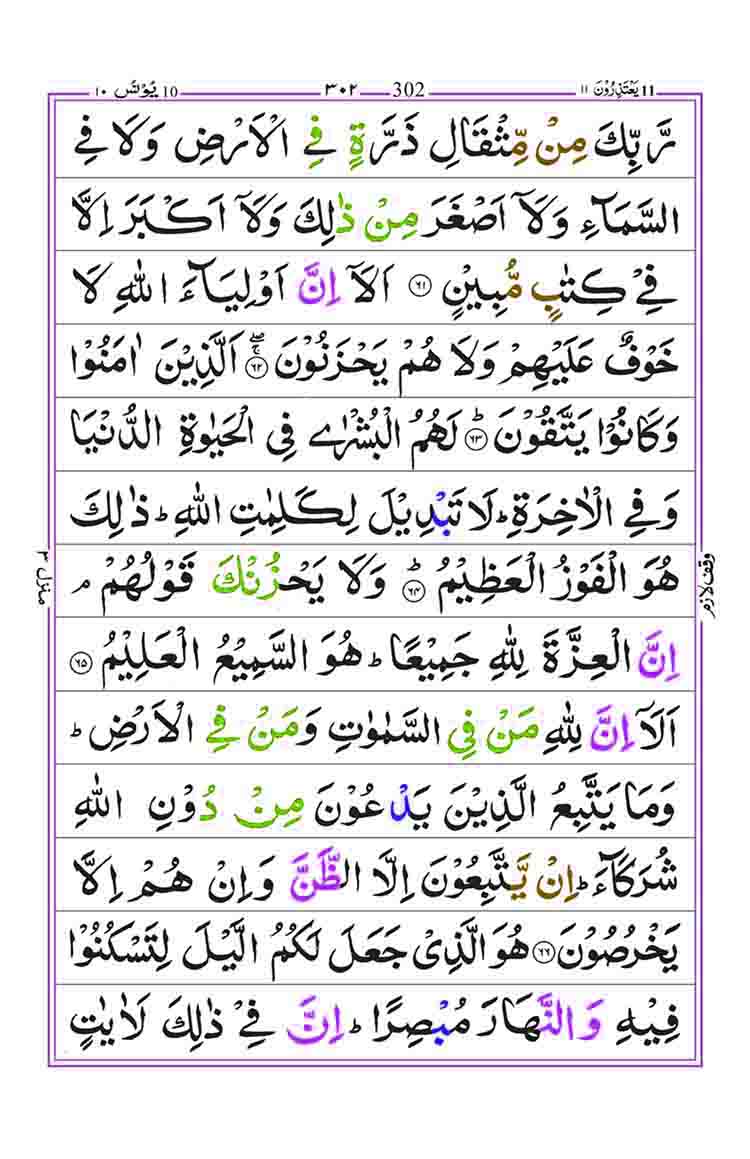 يَعْتَذِرُوْنَ ١١ 11
٣٠٢ 302
١٠ يُوْنُس 10
رَّبِّكَ مِنْ مِّثْقَالِ ذَرَّةٍ فِي الْاَرْضِ وَلَا فِي
السَّمَآءِ وَلَآ اَصْغَرَ مِنْ ذٰلِكَ وَلَآ اَكْبَرَ اِلَّا
فِيْ كِتٰبٍ مُّبِيْنٍ ۝٦١ اَلَآ اِنَّ اَوْلِيَآءَ اللّٰهِ لَا
خَوْفٌ عَلَيْهِمْ وَلَا هُمْ يَحْزَنُوْنَ ۝٦٢ۖۚ اَلَّذِيْنَ اٰمَنُوْا
وَكَانُوْا يَتَّقُوْنَ ۝٦٣ؕ لَهُمُ الْبُشْرٰي فِي الْحَيٰوةِ الدُّنْيَا
وَفِي الْاٰخِرَةِ ؕ لَا تَبْدِيْلَ لِكَلِمٰتِ اللّٰهِ ؕ ذٰلِكَ
هُوَ الْفَوْزُ الْعَظِيْمُ ۝٦٤ؕ وَلَا يَحْزُنْكَ قَوْلُهُمْ ۘ
اِنَّ الْعِزَّةَ لِلّٰهِ جَمِيْعًا ؕ هُوَ السَّمِيْعُ الْعَلِيْمُ ۝٦٥
اَلَآ اِنَّ لِلّٰهِ مَنْ فِي السَّمٰوٰتِ وَمَنْ فِي الْاَرْضِ ؕ
وَمَا يَتَّبِعُ الَّذِيْنَ يَدْعُوْنَ مِنْ دُوْنِ اللّٰهِ
شُرَكَآءَ ؕ اِنْ يَّتَّبِعُوْنَ اِلَّا الظَّنَّ وَاِنْ هُمْ اِلَّا
يَخْرُصُوْنَ ۝٦٦ هُوَ الَّذِيْ جَعَلَ لَكُمُ الَّيْلَ لِتَسْكُنُوْا
فِيْهِ وَالنَّهَارَ مُبْصِرًا ؕ اِنَّ فِيْ ذٰلِكَ لَاٰيٰتٍ
وقف لازم
منزل ٣